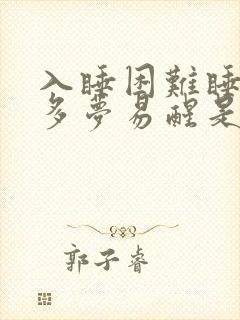 入睡困難睡
多夢易醒是
郭子睿